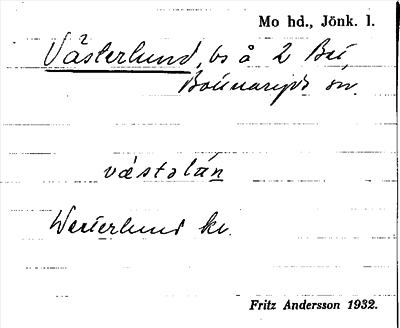 Mo hd., Jönk. l.
Västerlund, bs å 2 Bai,
Bottnaryds sn.
västəlán
Westerlund kv.
Fritz Andersson 1932.